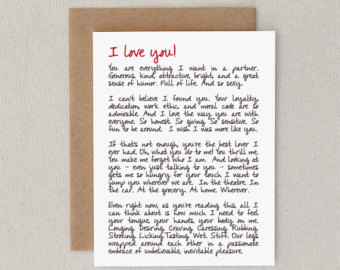 I love you!
You are everything I want in a partner.
Generous, kind, attractive, bright, and a great
sense of humor. Full of life. And so sexy.
I can't believe I found you. Your loyalty,
dedication work ethic, and moral code are so
admirable. And I love the way you are with
everyone. So honest. So giving. So sensitive. So
fun to be around. I wish I was more like you.
If that's not enough, you're the best lover I
ever had. Oh, what you do to me! You thrill me.
You make me forget who I am. And looking at
you - even just talking to you - sometimes
gets me so hungry for your touch I want to
jump you wherever we are. In the theatre. In
the car. At the grocery. At home. Wherever.
Even right now, as you're reading this, all I
can think about is how much I need to feel
your tongue, your hands, your body on me.
Longing, Desiring, Craving, Caressing, Rubbing,
Stroking, Licking, Tasting, Wet. Stuff. Our legs
wrapped around each other in a passionate
embrace of unbelievable, inevitable pleasure.